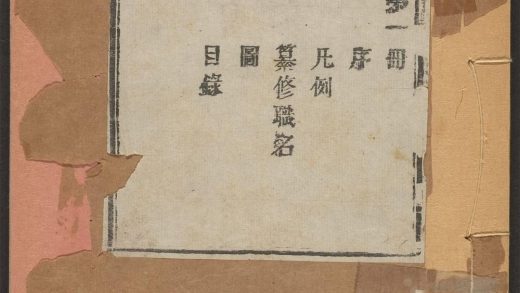 第一冊
序
凡例
纂修職名
圖
目錄